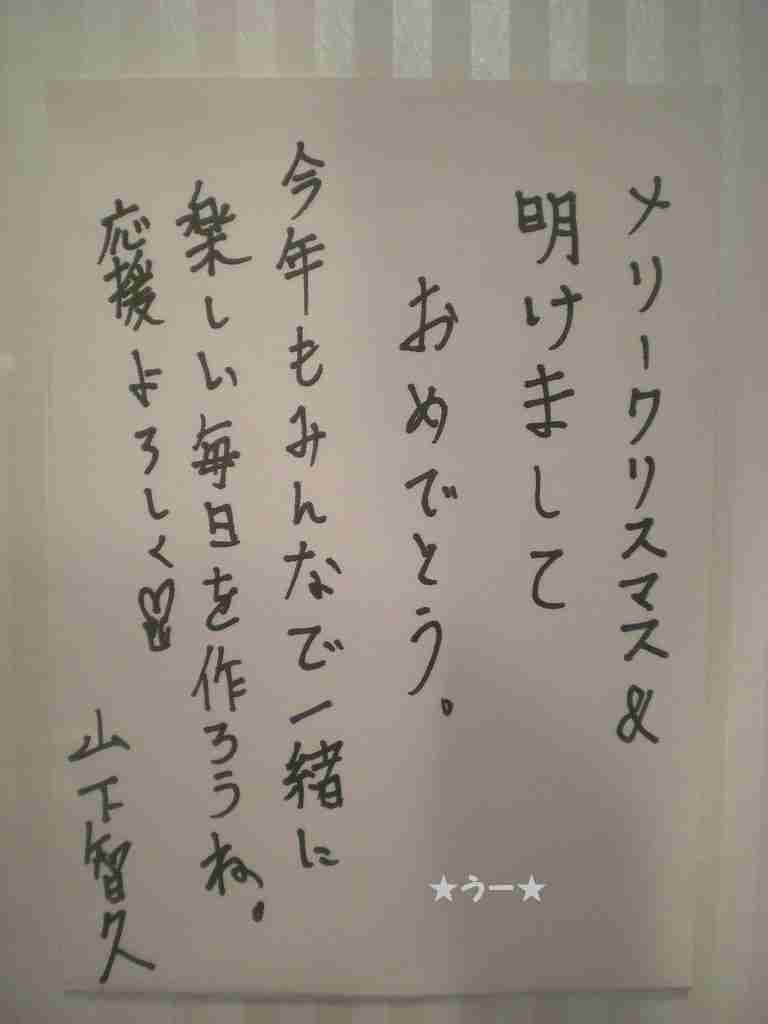 メリークリスマス&
明けまして
おめでとう。
今年もみんなで一緒に
楽しい毎日を作ろうね。
応援よろしく
山下智久
★うー★